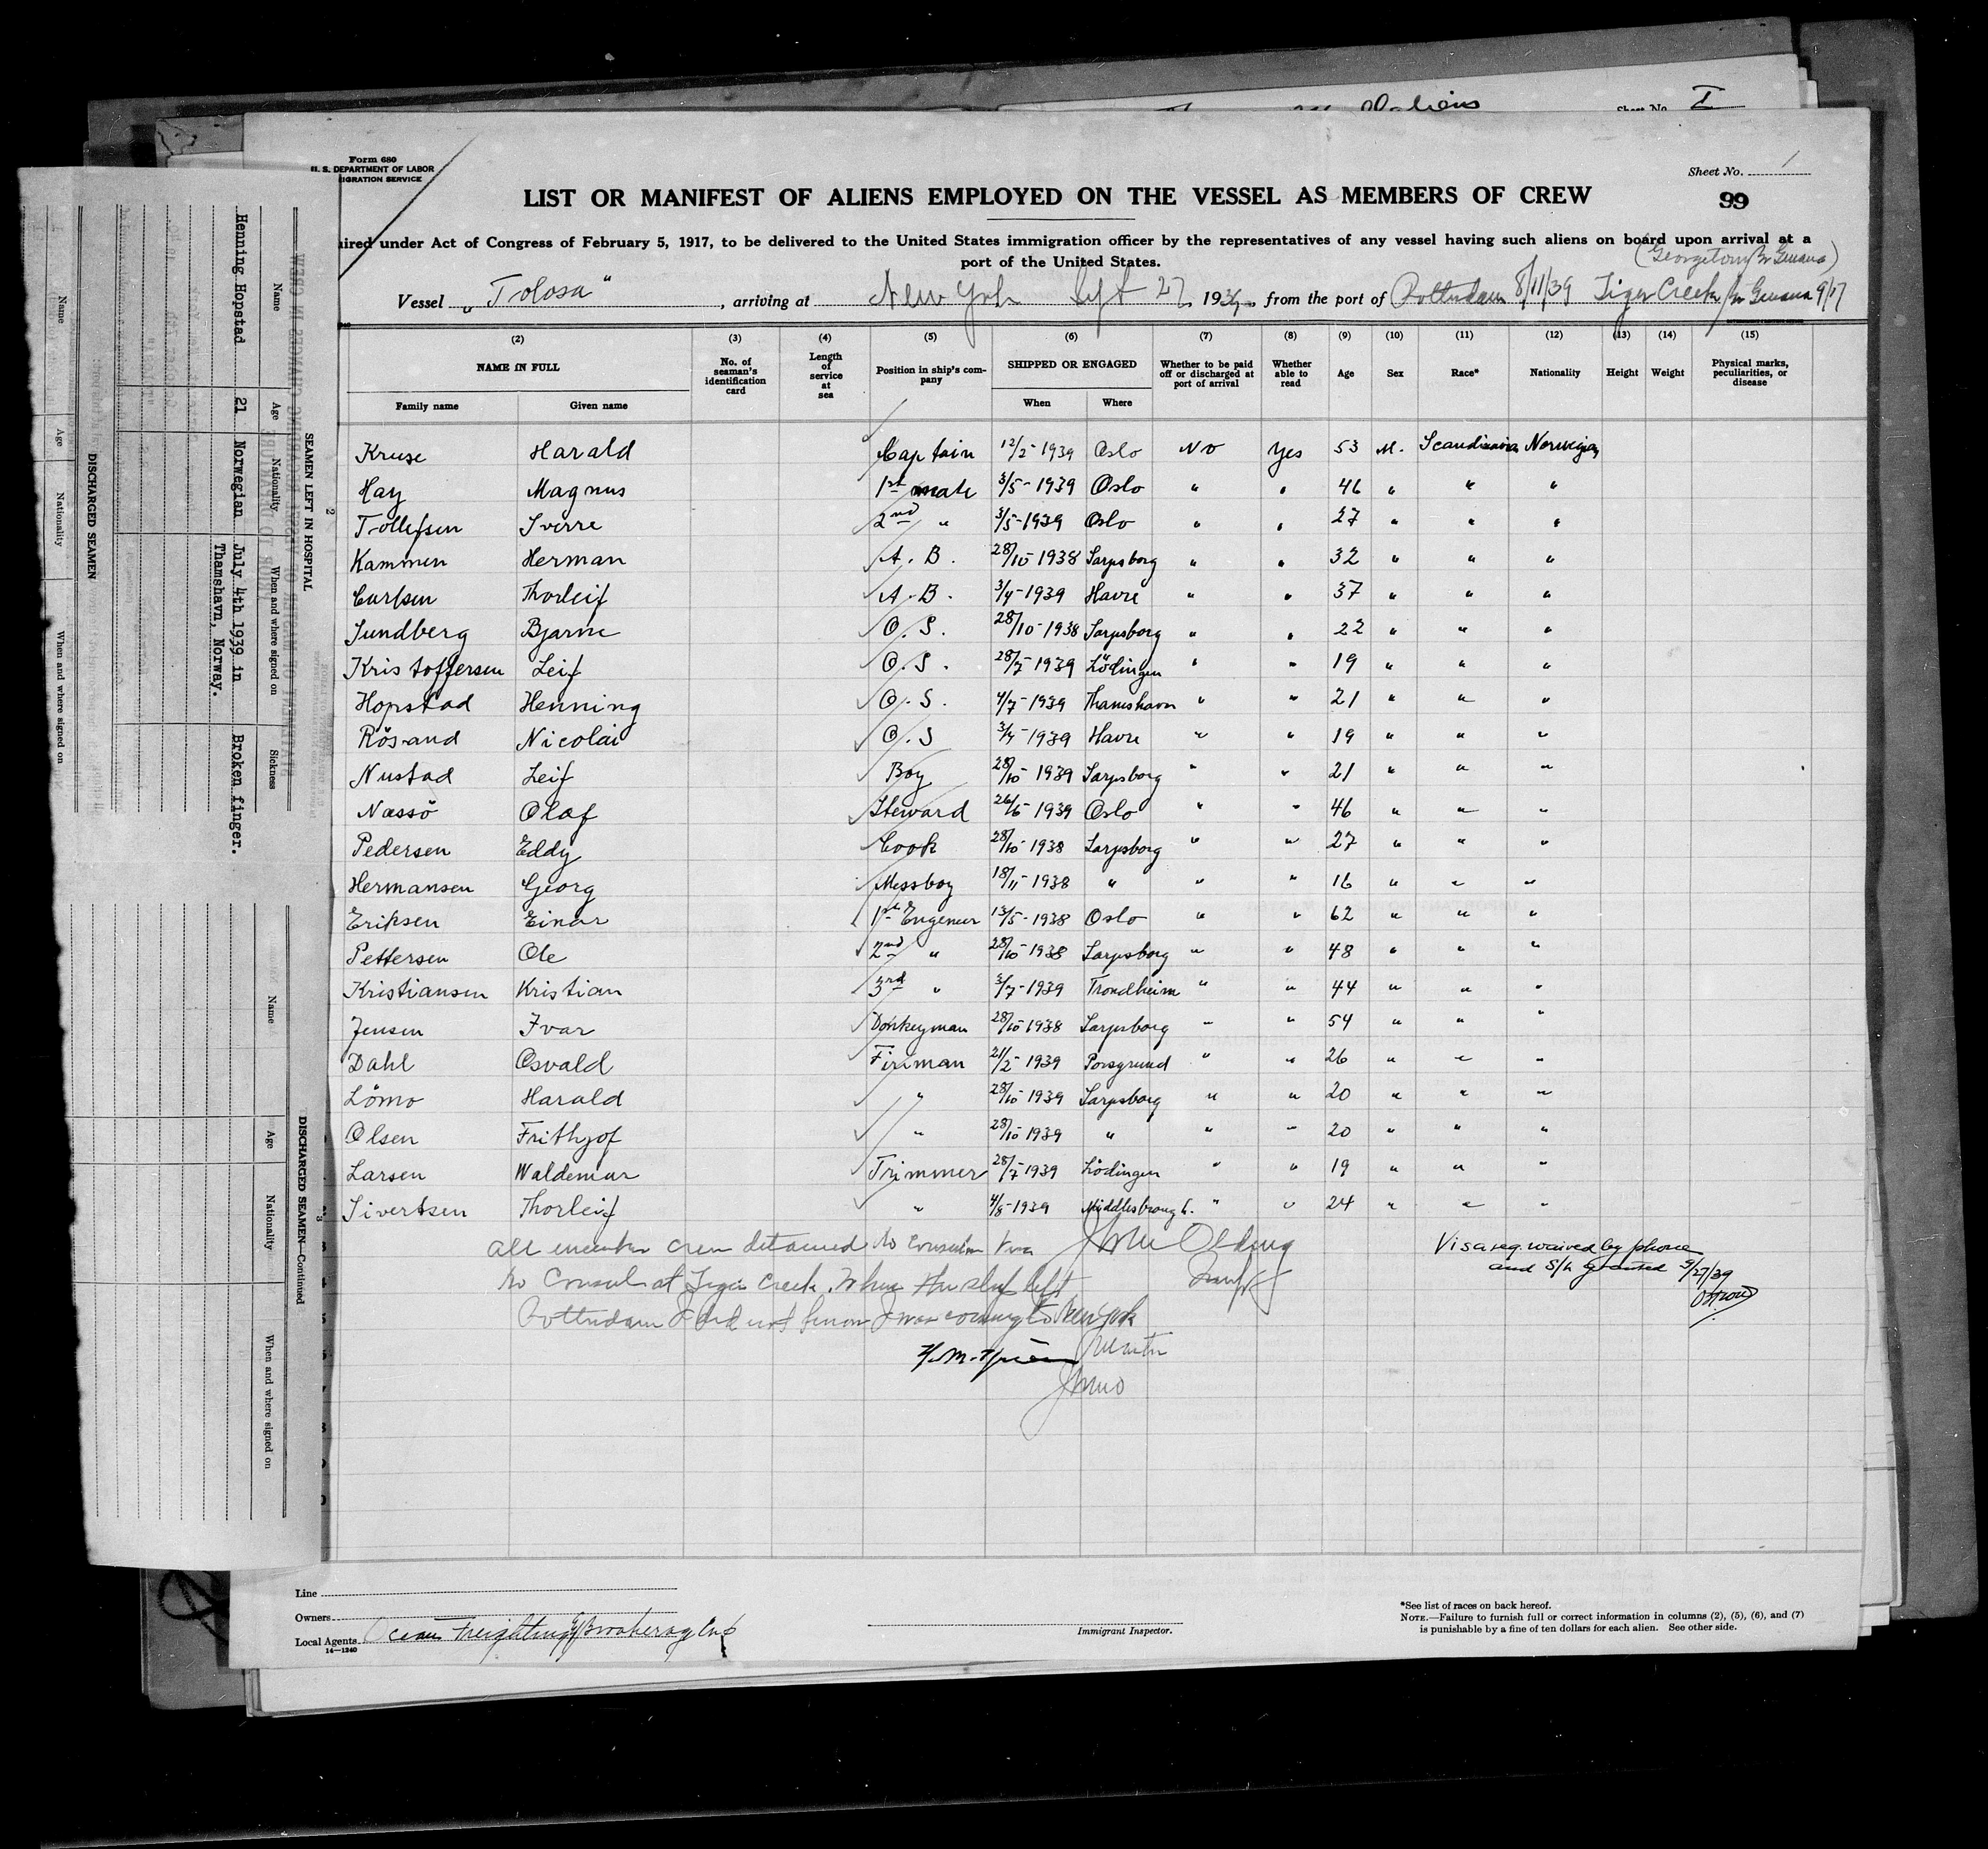 Form 680
U. S. DEPARTMENT OF LABOR
IGRATION SERVICE
Sheet No. 1
LIST OR MANIFEST OF ALIENS EMPLOYED ON THE VESSEL AS MEMBERS OF CREW
99
uired under Act of Congress of February 5, 1917, to be delivered to the United States immigration officer by the representatives of any vessel having such aliens on board upon arrival at a
port of the United States.
(Georgetown Br Guiana)
Vessel „Tolosa", arriving at New York Sept 27, 1939, from the port of Rotterdam 8/11/39 Tiger Creek Br Guiana 9/17
(2) (3) (4) (5) (6) (7) (8) (9) (10) (11) (12) (13) (14) (15)
NAME IN FULL
Family name Given name
No. of seaman's identification card
Length of service at sea
Position in ship's company
SHIPPED OR ENGAGED
When Where
Whether to be paid off or discharged at port of arrival
Whether able to read
Age
Sex
Race*
Nationality
Height
Weight
Physical marks, peculiarities, or disease
Kruse Harald Captain 12/2-1939 Oslo No Yes 53 M. Scandinavia Norwegian
Hay Magnus 1st mate 3/5-1939 Oslo " " 46 " " "
Tollefsen Sverre 2nd " 3/5-1939 Oslo " " 27 " " "
Kammen Herman A.B. 28/10-1938 Sarpsborg " " 32 " " "
Carlsen Thorleif A.B. 3/4-1939 Havre " " 37 " " "
Sundberg Bjarne O.S. 28/10-1938 Sarpsborg " " 22 " " "
Kristoffersen Leif O.S. 28/7-1939 Lödingen " " 19 " " "
Hopstad Henning O.S. 4/7-1939 Thamshavn " " 21 " " "
Rösand Nicolai O.S 3/4-1939 Havre " " 19 " " "
Nustad Leif Boy 28/10-1939 Sarpsborg " " 21 " " "
Nassö Olaf Steward 26/6-1939 Oslo " " 46 " " "
Pedersen Eddy Cook 28/10-1938 Sarpsborg " " 27 " " "
Hermansen Georg Messboy 18/11-1938 " " " 16 " " "
Eriksen Einar 1st Engeneer 13/5-1938 Oslo " " 62 " " "
Pettersen Ole 2nd " 28/10-1938 Sarpsborg " " 48 " " "
Kristiansen Kristian 3rd " 3/7-1939 Trondheim " " 44 " " "
Jensen Ivar Donkeyman 28/10-1938 Sarpsborg " " 54 " " "
Dahl Osvald Fireman 21/2-1939 Porsgrund " " 26 " " "
Lömo Harald " 28/10-1939 Sarpsborg " " 20 " " "
Olsen Frithjof " 28/10-1939 " " " 20 " " "
Larsen Waldemar Trimmer 28/7-1939 Lödingen " " 19 " " "
Sivertsen Thorleif " 4/8-1939 Middlesbrough. " " 24 " " "
all member crew detained No Consular Visa
No Consul at Tiger Creek. When the ship left
Rotterdam I did not know I was coming to New York
Master
Visa req. waived by phone
and S/L granted 9/27/39
Line
Owners
Local Agents Ocean Freighting & Brokerage Corp
14—1240
Immigrant Inspector.
*See list of races on back hereof.
NOTE.—Failure to furnish full or correct information in columns (2), (5), (6), and (7)
is punishable by a fine of ten dollars for each alien. See other side.
SEAMEN LEFT IN HOSPITAL
Name Age Nationality When and where signed on Sickness
Henning Hopstad 21 Norwegian July 4th 1939 in Thamshavn, Norway. Broken finger.
DISCHARGED SEAMEN
Name Age Nationality When and where signed on
DISCHARGED SEAMEN—Continued
Name Age Nationality When and where signed on
Sheet No. I